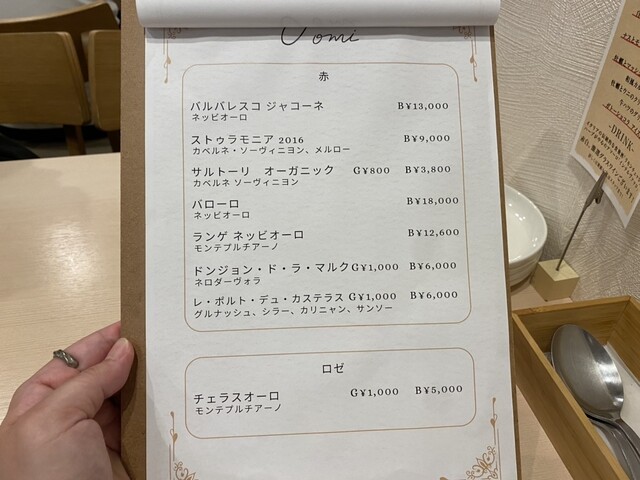 Uomi
赤
バルバレスコ ジャコーネ B¥13,000
ネッビオーロ
ストゥラモニア 2016 B¥9,000
カベルネ・ソーヴィニヨン、メルロー
サルトーリ オーガニック G¥800 B¥3,800
カベルネ ソーヴィニヨン
バローロ B¥18,000
ネッビオーロ
ランゲ ネッビオーロ B¥12,600
モンテプルチアーノ
ドンジョン・ド・ラ・マルク G¥1,000 B¥6,000
ネロダーヴォラ
レ・ポルト・デュ・カステラス G¥1,000 B¥6,000
グルナッシュ、シラー、カリニャン、サンソー
ロゼ
チェラスオーロ G¥1,000 B¥5,000
モンテプルチアーノ
-DRINK-